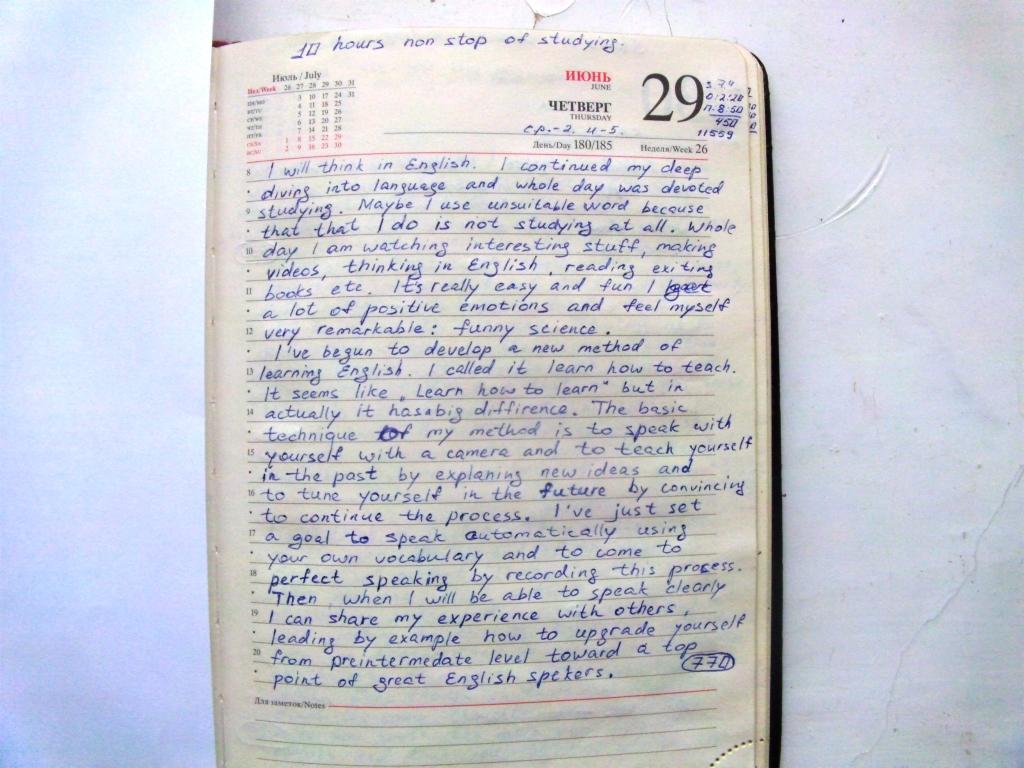 10 hours non stop of studying.
Июль / July
Нед/Week 26 27 28 29 30 31
ПН/MO 3 10 17 24 31
ВТ/TU 4 11 18 25
СР/WE 5 12 19 26
ЧТ/TH 6 13 20 27
ПТ/FR 7 14 21 28
СБ/SA 1 8 15 22 29
ВС/SU 2 9 16 23 30
ИЮНЬ
JUNE
ЧЕТВЕРГ
THURSDAY
29
ср.-2. и-5.
450
11559
День/Day 180/185 Неделя/Week 26
8 I will think in English. I continued my deep
diving into language and whole day was devoted
9 studying. Maybe I use unsuitable word because
that that I do is not studying at all. Whole
10 day I am watching interesting stuff, making
videos, thinking in English, reading exiting
11 books etc. It's really easy and fun I
a lot of positive emotions and feel myself
12 very remarkable: funny science.
I've begun to develop a new method of
13 learning English. I called it learn how to teach.
It seems like „Learn how to learn" but in
14 actually it has a big diffirence. The basic
technique of my method is to speak with
15 yourself with a camera and to teach yourself
in the past by explaning new ideas and
16 to tune yourself in the future by convincing
to continue the process. I've just set
17 a goal to speak automatically using
your own vocabulary and to come to
18 perfect speaking by recording this process.
Then, when I will be able to speak clearly
19 I can share my experience with others,
leading by example how to upgrade yourself
20 from preintermedate level toward a top
point of great English spekers. 770
Для заметок/Notes